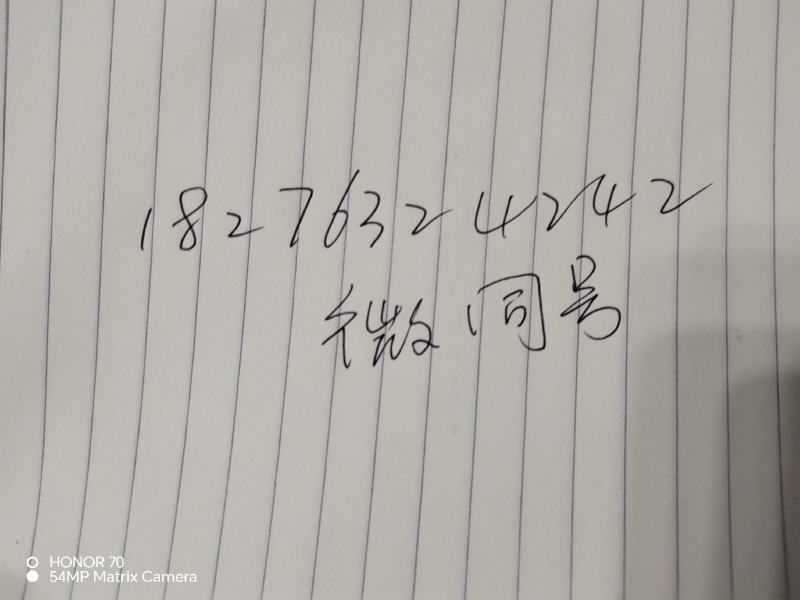 18276324242
微同号
HONOR 70
54MP Matrix Camera